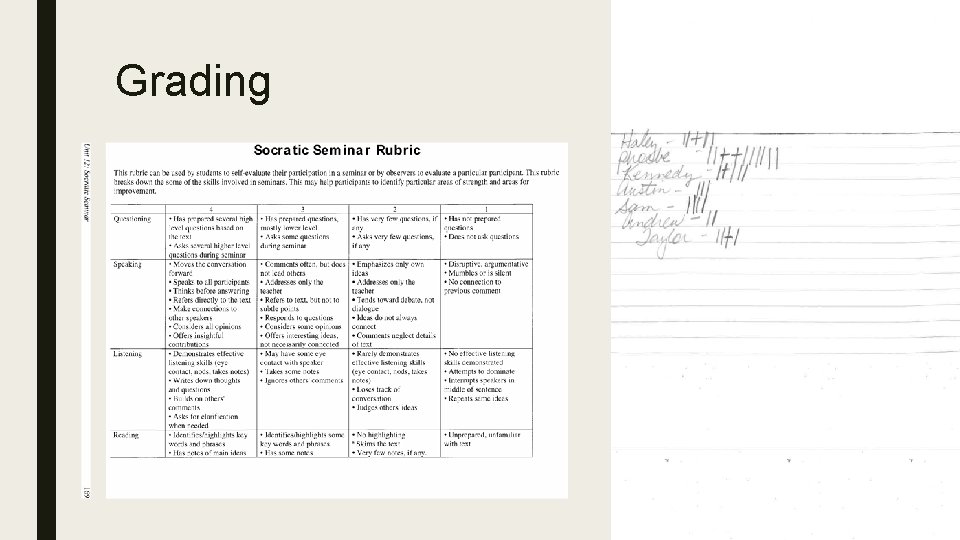 Grading
Unit 12: Socratic Seminar
Socratic Seminar Rubric
This rubric can be used by students to self-evaluate their participation in a seminar or by observers to evaluate a particular participant. This rubric
breaks down the some of the skills involved in seminars. This may help participants to identify particular areas of strength and areas for
improvement.
4 3 2 1
Questioning
• Has prepared several high
level questions based on
the text
• Asks several higher level
questions during seminar
• Has prepared questions,
mostly lower level
• Asks some questions
during seminar
• Has very few questions, if
any
• Asks very few questions,
if any
• Has not prepared
questions
• Does not ask questions
Speaking
• Moves the conversation
forward
• Speaks to all participants
• Thinks before answering
• Refers directly to the text
• Make connections to
other speakers
• Considers all opinions
• Offers insightful
contributions
• Comments often, but does
not lead others
• Addresses only the
teacher
• Refers to text, but not to
subtle points
• Responds to questions
• Considers some opinions
• Offers interesting ideas,
not necessarily connected
• Emphasizes only own
ideas
• Addresses only the
teacher
• Tends toward debate, not
dialogue
• Ideas do not always
connect
• Comments neglect details
of text
• Disruptive, argumentative
• Mumbles or is silent
• No connection to
previous comment
Listening
• Demonstrates effective
listening skills (eye
contact, nods, takes notes)
• Writes down thoughts
and questions
• Builds on others'
comments
• Asks for clarification
when needed
• May have some eye
contact with speaker
• Takes some notes
• Ignores others' comments
• Rarely demonstrates
effective listening skills
(eye contact, nods, takes
notes)
• Loses track of
conversation
• Judges others' ideas
• No effective listening
skills demonstrated
• Attempts to dominate
• Interrupts speakers in
middle of sentence
• Repeats same ideas
Reading
• Identifies/highlights key
words and phrases
• Has notes of main ideas
• Identifies/highlights some
key words and phrases
• Has some notes
• No highlighting
• Skims the text
• Very few notes, if any.
• Unprepared, unfamiliar
with text
Haley -
Phoebe -
Kennedy -
Austin -
Sam -
Andrew -
Taylor -